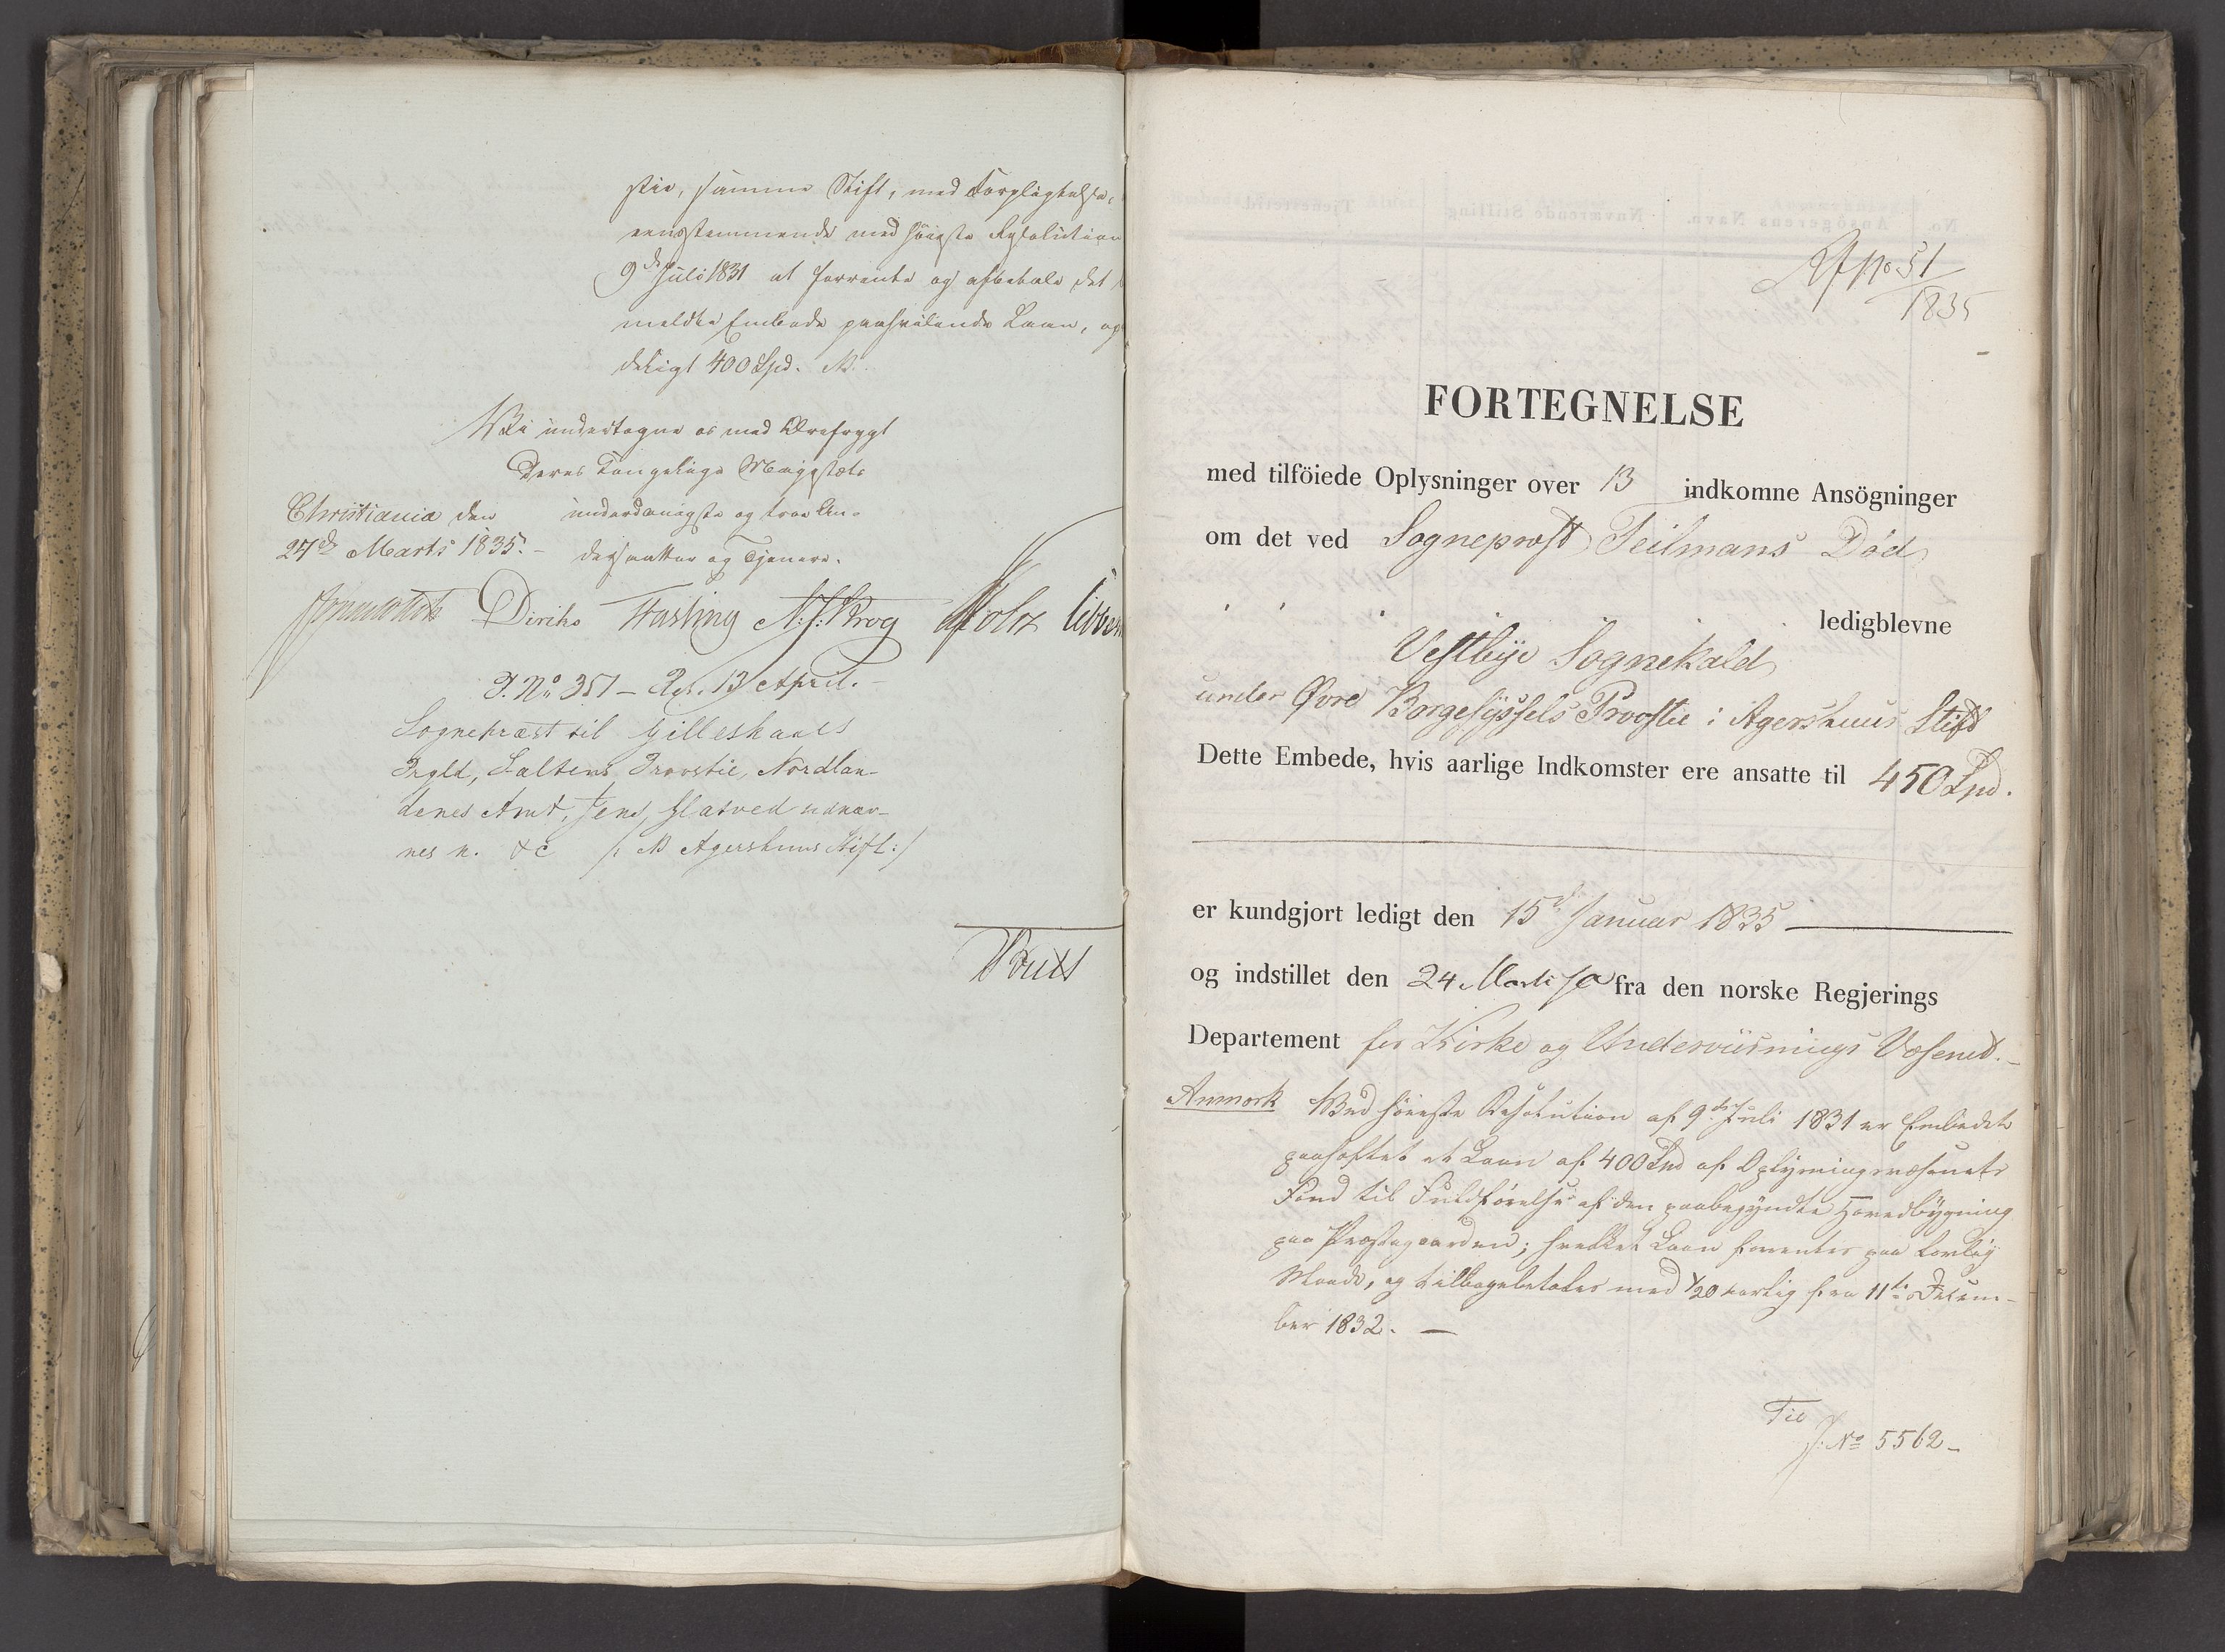 stie, samme Stift, med Forpligtelse,
eensstemmende med høieste Resolution
9de Juli 1831 at forrente og afbetale det
meldte Embede paahvilende Laan, op
deligt 400 Spd.
Vi undertegne os med Ærefrygt
Deres Kongelige Majestæts
Christiania den underdanigste og troe Un-
27de Marts 1835.- dersaatter og Tjenere.
Diriks Fasting N. J. Krog Holst
P. No 351 - Res. 13 April.-
Sognepræst til Gilleskaals
Prgld, Saltens Provstie, Nordlan-
denes Amt, Jens Slatved udnæv-
nes n. &c /: NB Agershuus Stift :/
No 51
1835
FORTEGNELSE
med tilföiede Oplysninger over 13 indkomne Ansögninger
om det ved Sogneprost Teilmans Død
ledigblevne
Vestbye Sognekald
under Øvre Borgesyssels Provstie i Agershuus Stift
Dette Embede, hvis aarlige Indkomster ere ansatte til 450 Spd.
er kundgjort ledigt den 15de Januar 1835
og indstillet den 24 Marts s.A. fra den norske Regjerings
Departement for Kirke og Underviisnings Væsenet.-
Anmærk Ved høieste Resolution af 9de Juli 1831 er Embedet
paaheftet et Laan af 400 Spd af Oplysningsvæsenets
Fond til Fuldførelse af den paabegyndte Hovedbygning
paa Præstegaarden; hvilket Laan forrentes paa lovlig
Maade, og tilbagebetales med 1/20 aarlig fra 11te Decem-
ber 1832. —
Til
J. No 5562-